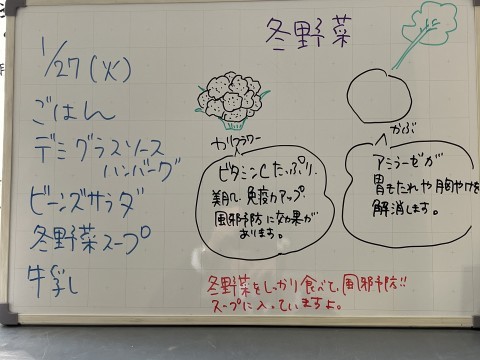 冬野菜
1/27(火)
ごはん
デミグラスソース
ハンバーグ
ビーンズサラダ
冬野菜スープ
牛乳
カリフラワー
ビタミンCたっぷり
美肌、免疫力アップ、
風邪予防に効果が
あります。
かぶ
アミラーゼが
胃もたれや胸やけを
解消します。
冬野菜をしっかり食べて、風邪予防!!
スープに入っていますよ。